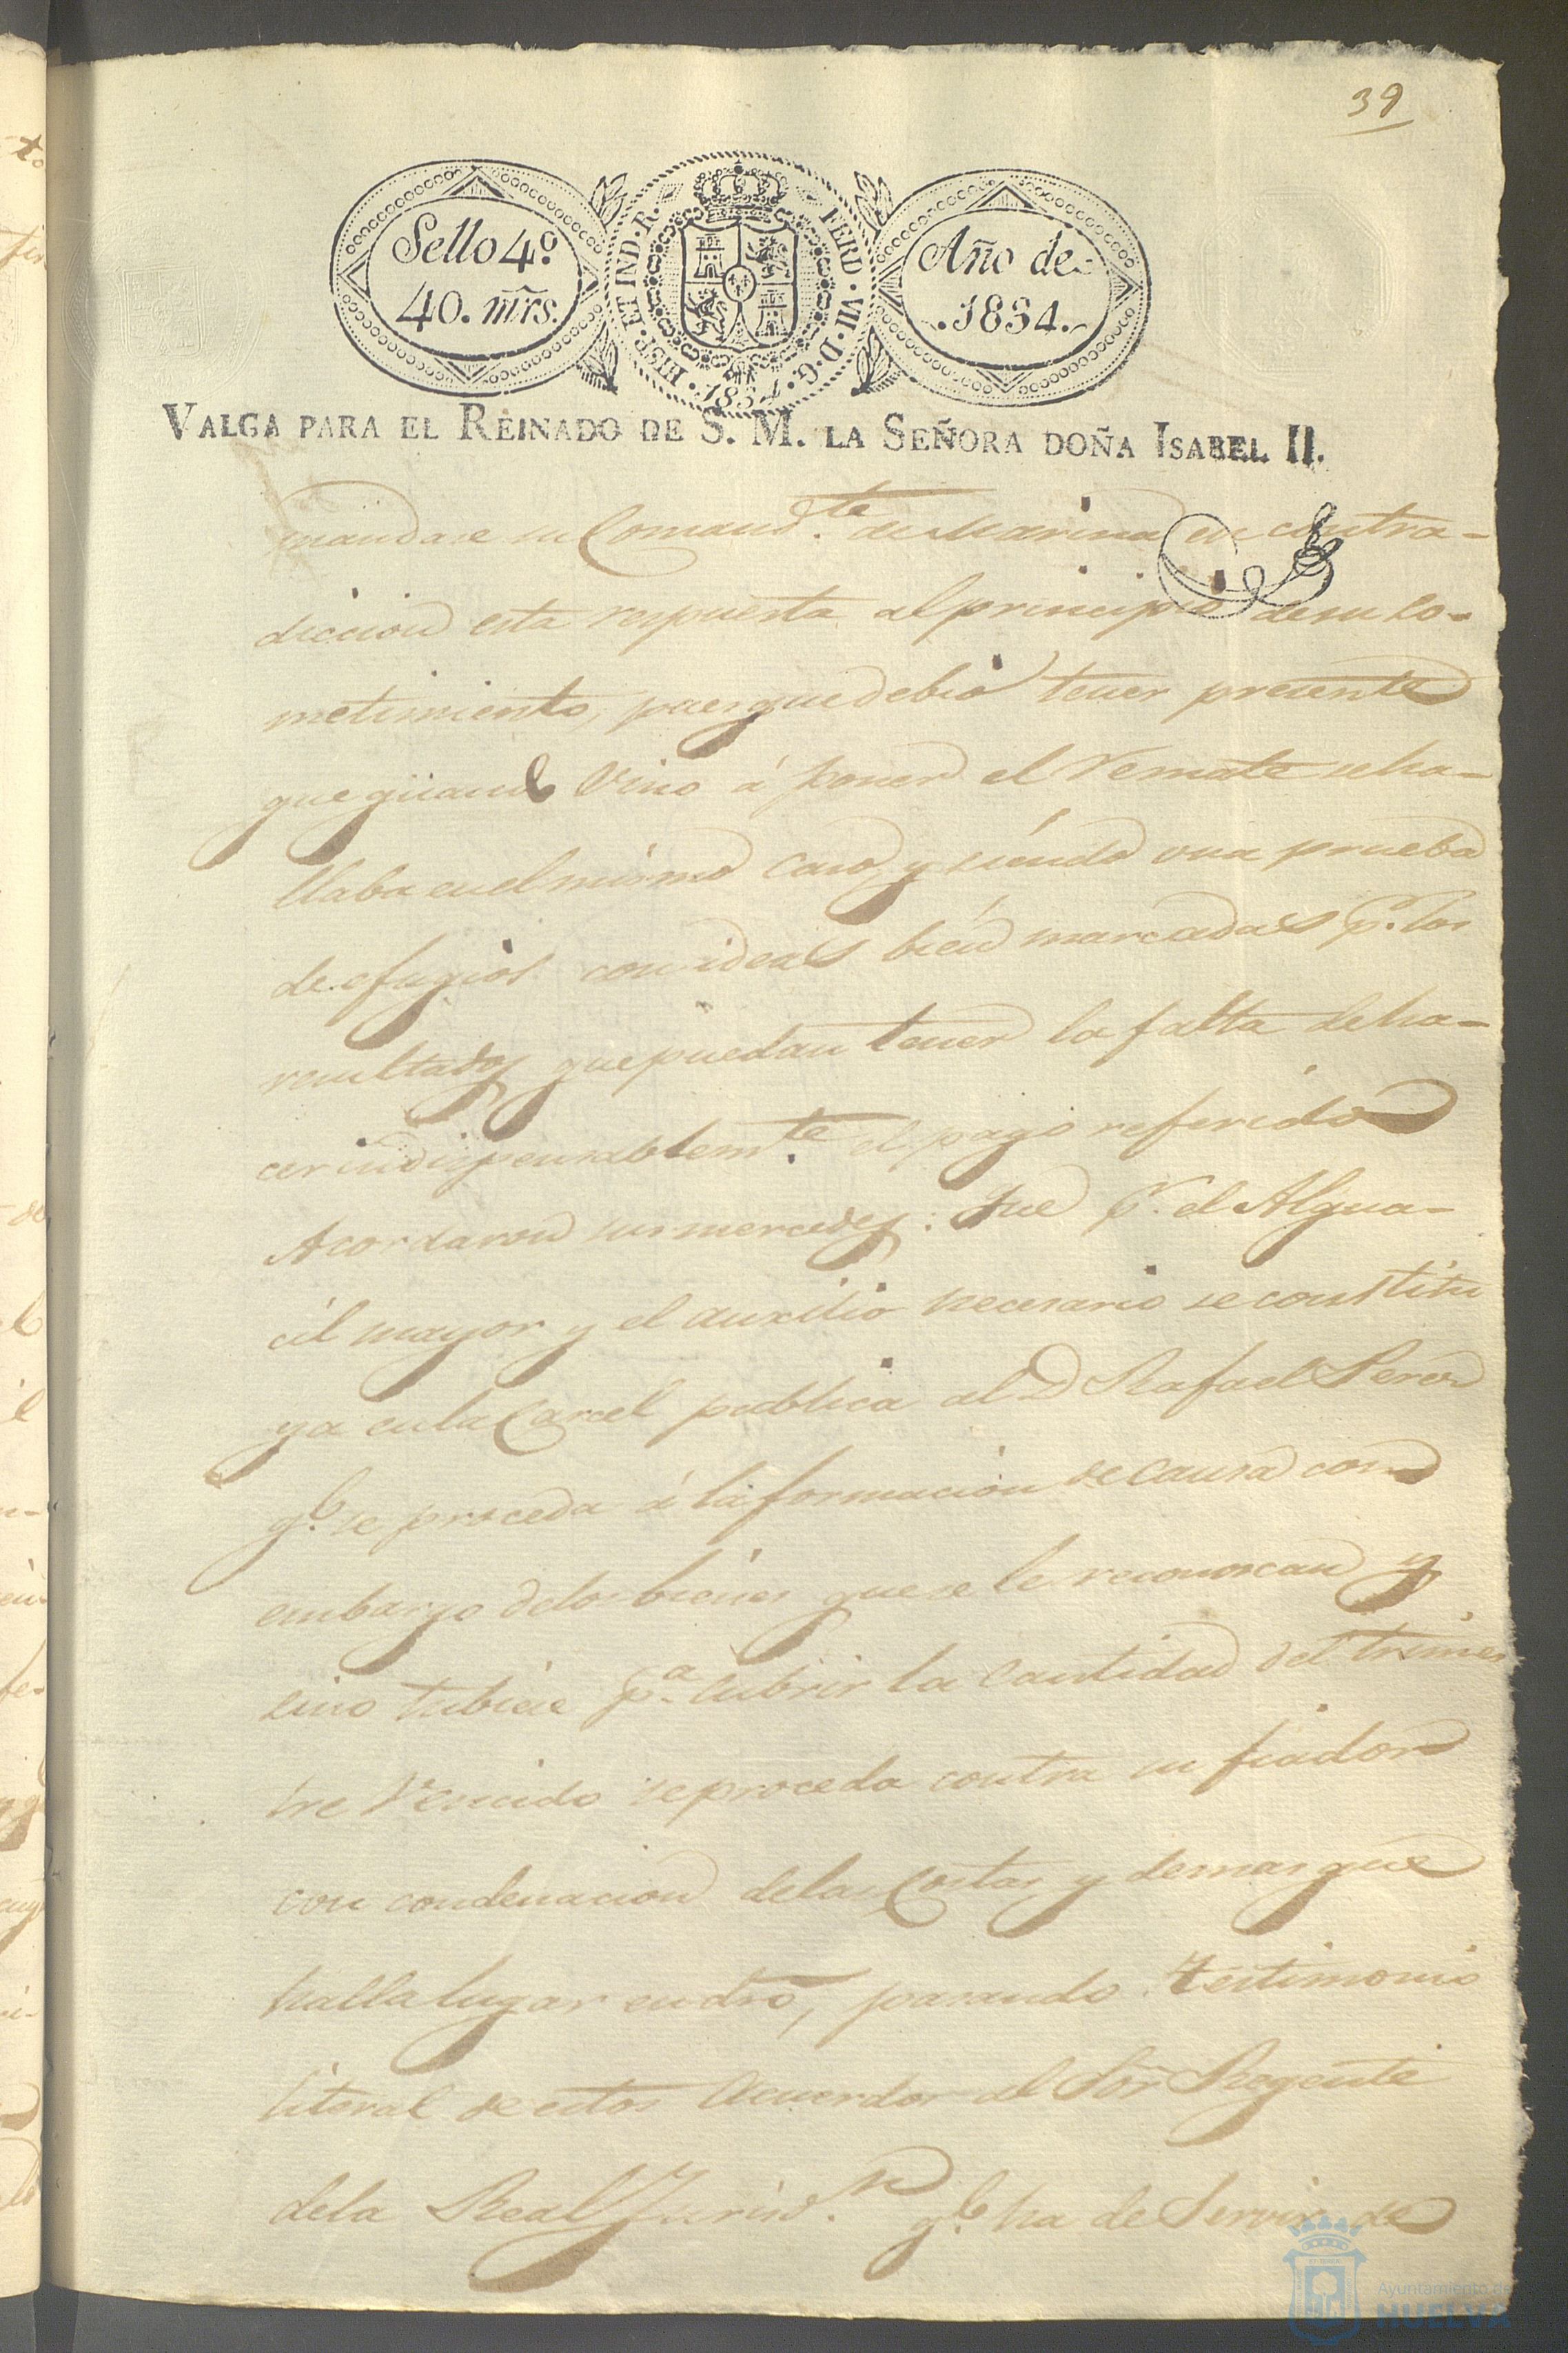 39
Sello 4º
40. mrs.
HISP. ET IND. R. FERD. VII. D. G. 1834.
Año de
1834.
VALGA PARA EL REINADO DE S. M. LA SEÑORA DOÑA ISABEL II.
mandase su Comandte. de Marina en contra-
diccion esta respuesta al principio de su so-
metimiento, pues que debió tener presente
que quando vino á poner el remate se ha-
llaba en el mismo caso, y siendo una prueba
de efugios con ideas bien marcadas pr. los
resultados que puedan tener la falta de ha-
cer indispensablemte. el pago referido
Acordaron sus mercedes: Que pr. el Algua-
cil mayor y el auxilio necesario se constitu
ya en la Carcel publica al D Rafael Perez
qe. se proceda á la formacion de causa con
embargo de los bienes que se le reconoscan y
sino tubiese pa. cubrir la cantidad del trimes
tre vencido se proceda contra su fiador
con condenacion de las Costas y demas que
halla lugar en dro, pasando testimonio
literal de estos acuerdos al Sor Regente
de la Real Jurisdn. qe. ha de servir de
Ayuntamiento de
HUELVA